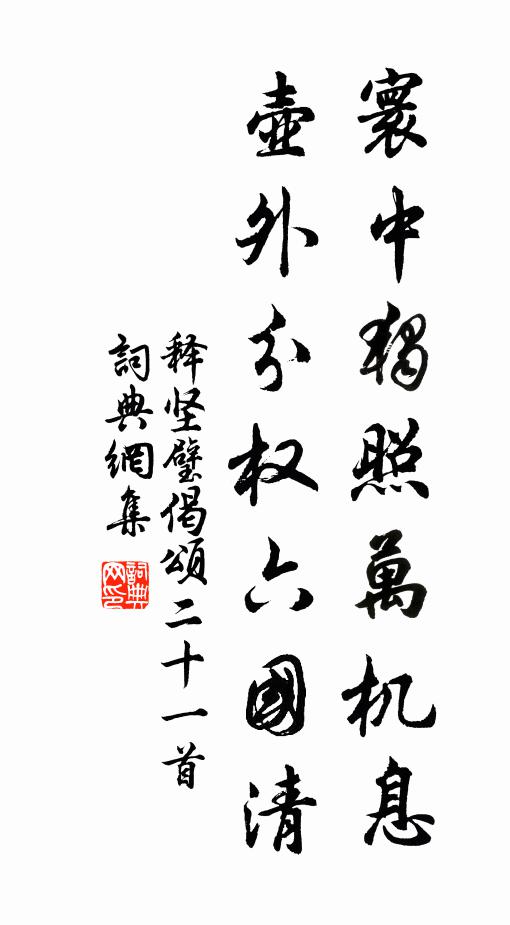 寰中独照萬机息
壺外分权六國清
释坚璧偈頌二十一首
詞典網集
詞典网印